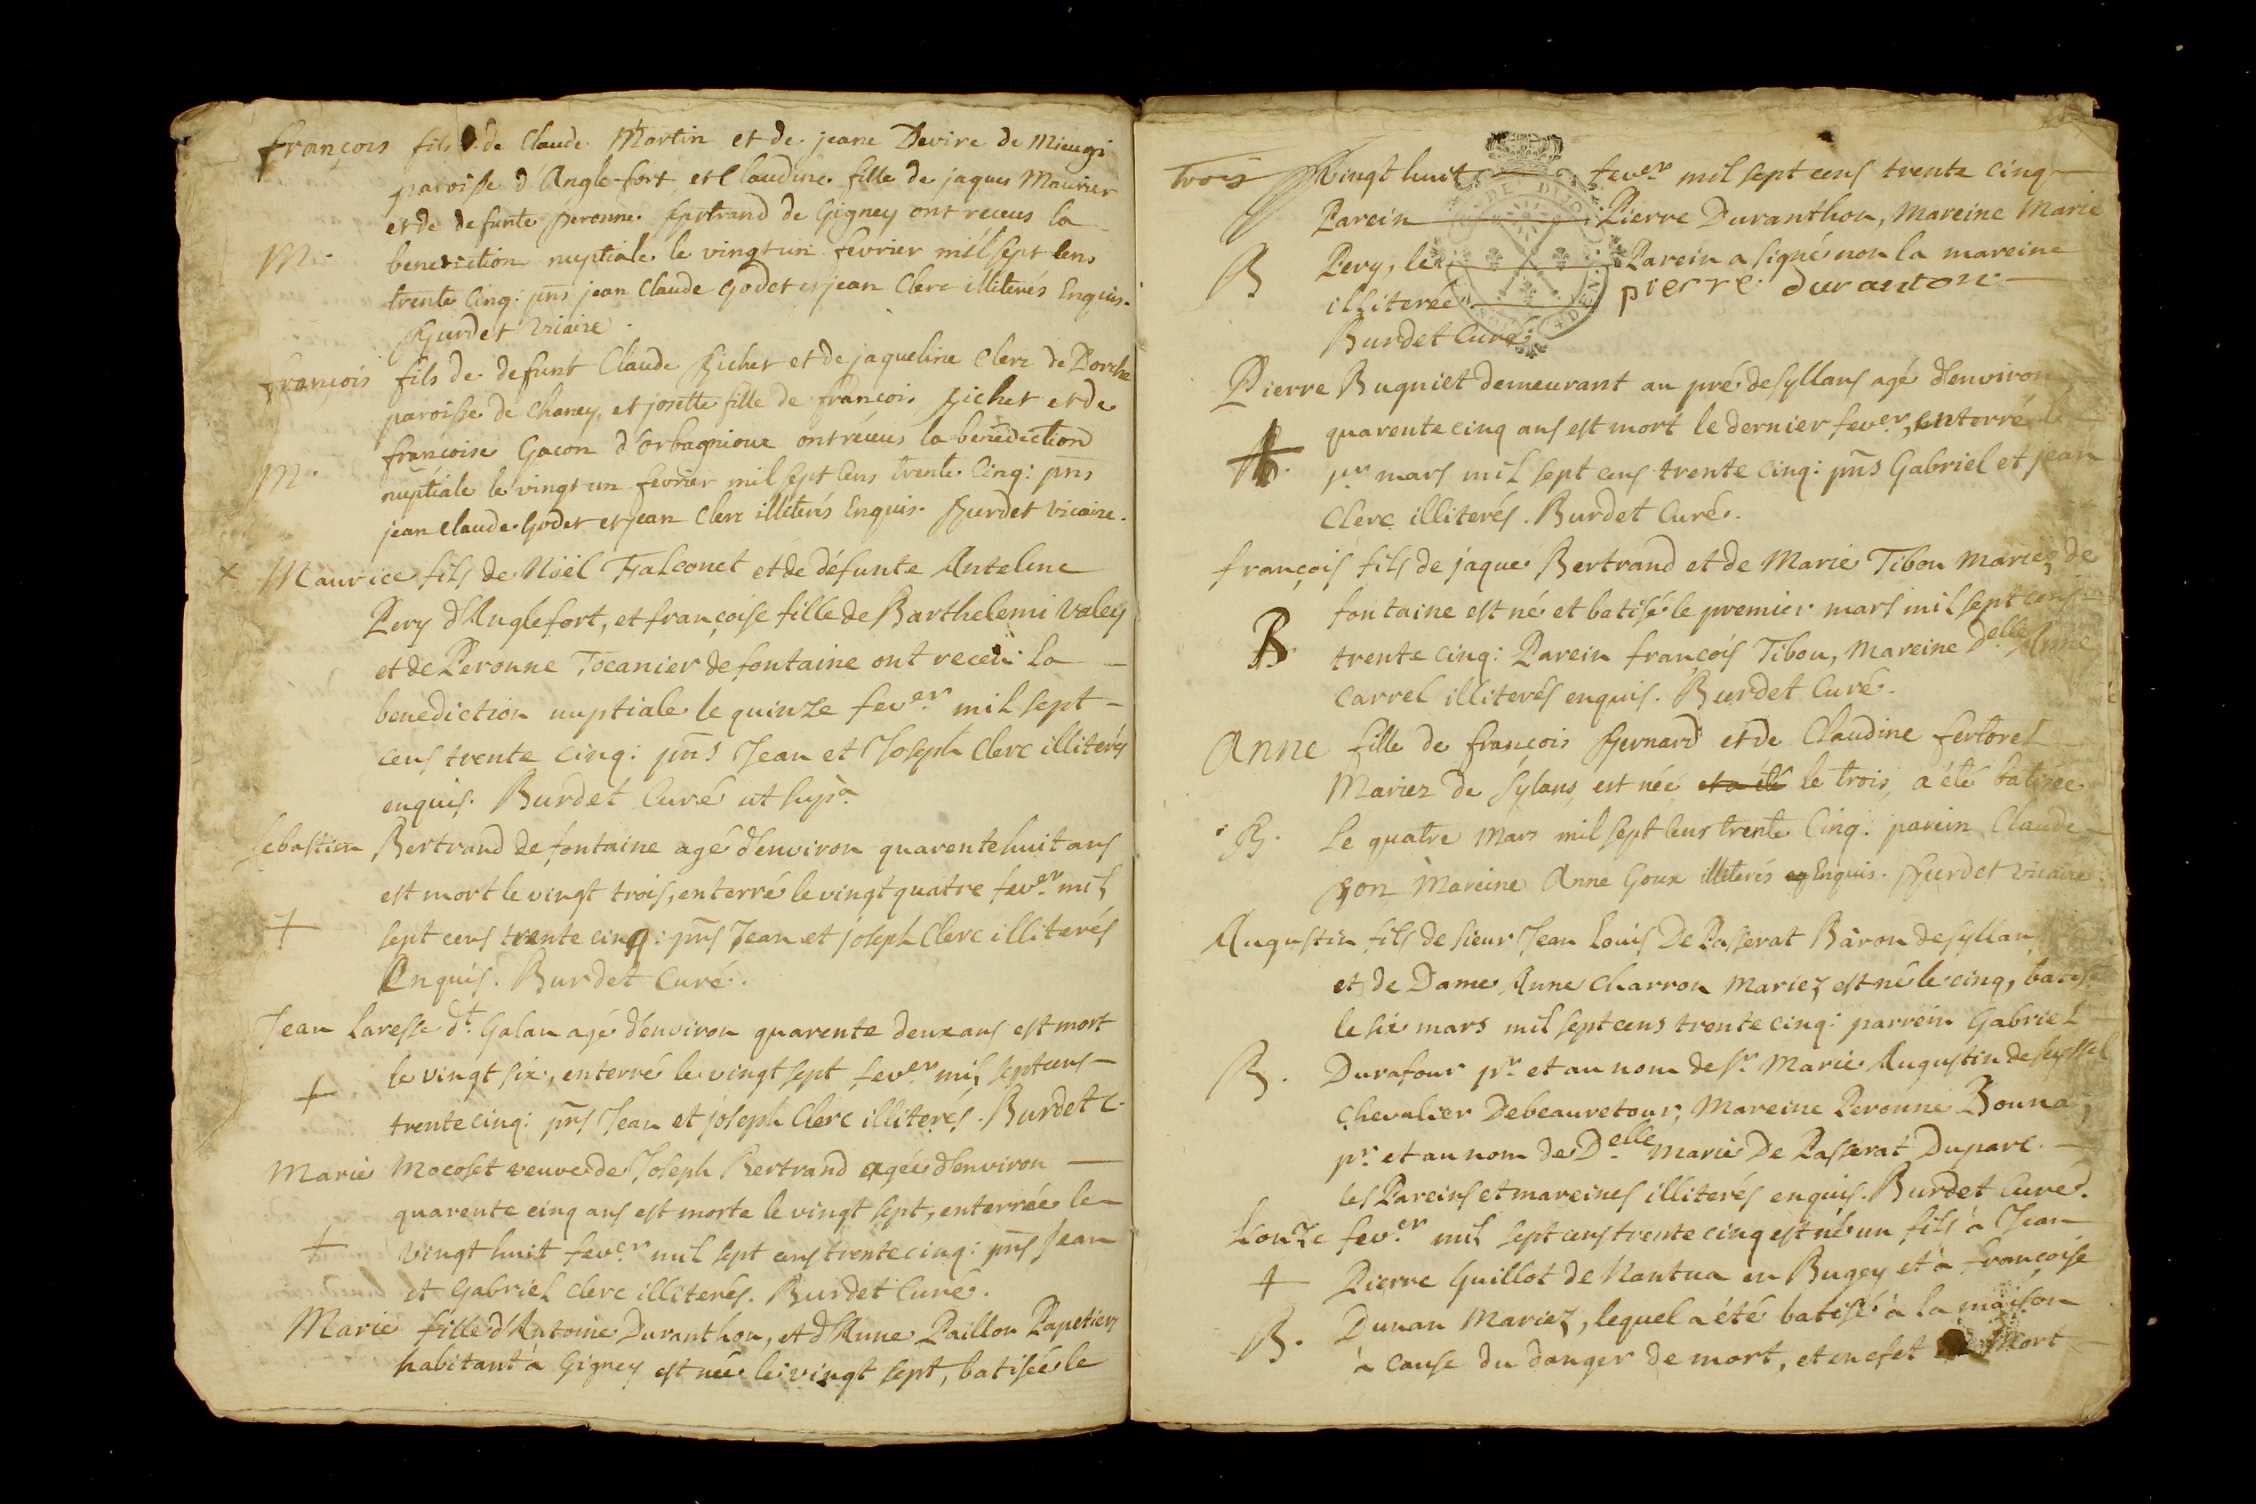 françois fils de Claude Martin et de jeane Devire de Mieugi
paroisse d'Angle-fort et Claudine fille de jaques Maurier
et de defunte Peronne Bertrand de Gigney ont receus la
M. benediction nuptiale le vingt un fevrier mil sept cens
trente Cinq: pñs jean Claude Godet et jean Clerc illiterés Enquis.
Burdet Vicaire.
françois fils de defunt Claude Richet et de jaqueline Clerc de Dorche
paroisse de Chaney, et josette fille de françois Richet et de
françoise Gacon d'orbagnioux ont réceus la benediction
M. nuptiale le vingt un fevrier mil sept cens trente Cinq: pñs
jean Claude Godet et jean Clerc illiterés Enquis. Burdet Vicaire.
x Maurice fils de Noël Falconet et de défunte Anteline
Pery d'Anglefort, et françoise fille de Barthelemi Valey
et de Peronne Tocanier de fontaine ont receu la —
benediction nuptiale le quinze fev.er mil sept —
cens trente cinq: pñs Jean et Joseph Clerc illiterés
enquis. Burdet Curé ut supà
Sebastien Bertrand de fontaine agé d'environ quarente huit ans
est mort le vingt trois, enterré le vingt quatre fev.er mil
+ sept cens trente cinq: pñs Jean et joseph Clerc illiterés
Enquis. Burdet Curé.
Jean Laresse d.t Galan agé d'environ quarente deux ans est mort
+ le vingt six, enterré le vingt sept fev.er mil sept cens —
trente cinq: pñs Jean et joseph Clerc illiterés. Burdet C.
Marie Mocoset veuve de Joseph Bertrand agée d'environ —
quarente cinq ans est morte le vingt sept, enterrée le —
+ vingt huit fev.er mil sept cens trente cinq: pñs Jean
et Gabriel Clerc illiterés. Burdet Curé.
Marie fille d'Antoine Duranthon, et d'Anne Paillon Papetiers
habitant à Gigney est née le vingt sept, batisée le
trois Vingt huit fev.er mil sept cens trente cinq —
Parein — Pierre Duranthon, Mareine Marie
B Pery, le — Parein a signé non la mareine
illiterée — pierre duranton —
Burdet Curé.
Pierre Bugniet demeurant au pré de Syllans agé d'environ
quarente cinq ans est mort le dernier fev.er, enterré le
+ p.er mars mil sept cens trente cinq: pñs Gabriel et jean
Clerc illiterés. Burdet Curé.
françois fils de jaque Bertrand et de Marie Tibou mariez de
fontaine est né et batisé le premier mars mil sept cens —
B. trente cinq: Parein françois Tibou, Mareine D.elle Anne
Carrel illiterés enquis. Burdet Curé.
Anne fille de françois Bernard et de Claudine fertoret
Mariez de Sylans est née et a été le trois, a été batisée
B. Le quatre Mars mil sept cens trente Cinq: parein Claude —
Mareine Anne Goux illiterés Enquis. Burdet Vicaire
Augustin fils de sieur Jean Louis De Passerat Bâron de Syllan
et de Dame Anne Charron Mariez est né le cinq, batisé
le six mars mil sept cens trente cinq: parrein Gabriel —
B. Durafour p.r et au nom de S.r Marie Augustin de Seyssel
Chevalier Debeauretour, Mareine Peronne Bouna
p.r et au nom de D.elle Marie De Passerat Duparc. —
les Pareins et mareines illiterés enquis. Burdet Curé.
L'onze fev.er mil sept cens trente cinq est né un fils à Jean
+ Pierre Guillot de Nantua en Bugey et à françoise
B. Dunan Mariez, lequel a été batisé à la maison
à cause du danger de mort, et en efet mort